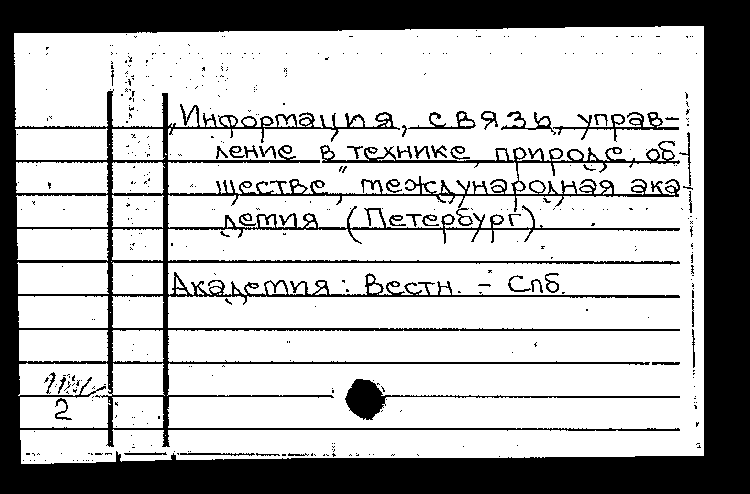 „Информация, связь, управ-
ление в технике, природе, об-
ществе," международная ака-
демия (Петербург).
Академия: Вестн. - Спб.
2